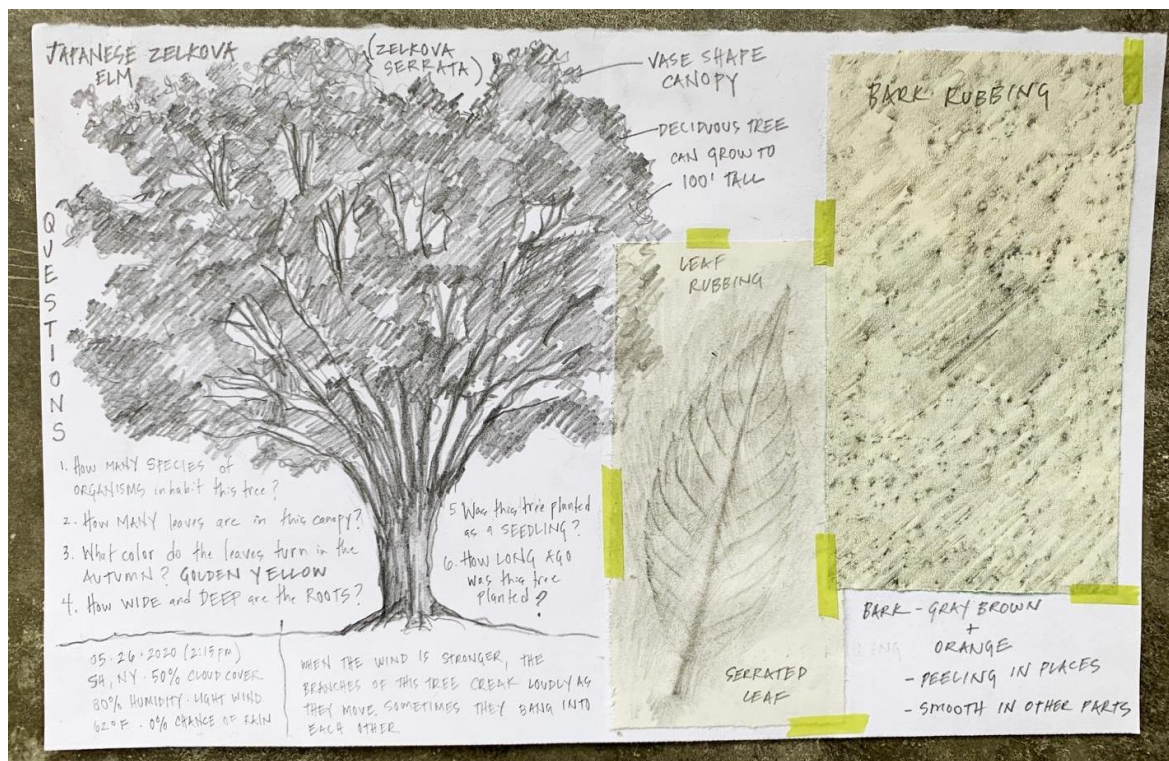 JAPANESE ZELKOVA
ELM
(ZELKOVA
SERRATA)
VASE SHAPE
CANOPY
DECIDUOUS TREE
CAN GROW TO
100' TALL
QUESTIONS
1. HOW MANY SPECIES of
ORGANISMS inhabit this tree?
2. HOW MANY leaves are in this canopy?
3. What color do the leaves turn in the
AUTUMN? GOLDEN YELLOW
4. How WIDE and DEEP are the ROOTS?
5. Was this tree planted
as a SEEDLING?
6. HOW LONG AGO
was this tree
planted?
05·26·2020 (2:15pm)
SH, NY · 50% CLOUD COVER
80% HUMIDITY · LIGHT WIND
62°F · 0% CHANCE OF RAIN
WHEN THE WIND IS STRONGER, THE
BRANCHES OF THIS TREE CREAK LOUDLY AS
THEY MOVE. SOMETIMES THEY BANG INTO
EACH OTHER.
LEAF
RUBBING
SERRATED
LEAF
BARK RUBBING
BARK - GRAY BROWN
+
ORANGE
- PEELING IN PLACES
- SMOOTH IN OTHER PARTS